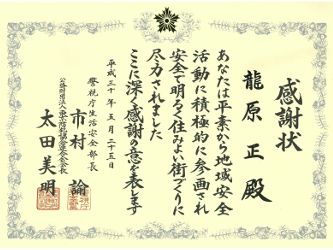 感謝状
龍原 正 殿
あなたは平素から地域安全
活動に積極的に参画され
安全で明るく住みよい街づくりに
尽力されました
ここに深く感謝の意を表します
平成三十年五月二十五日
警視庁生活安全部長
市村 諭
公益財団法人東京防犯協会連合会会長
太田 美明